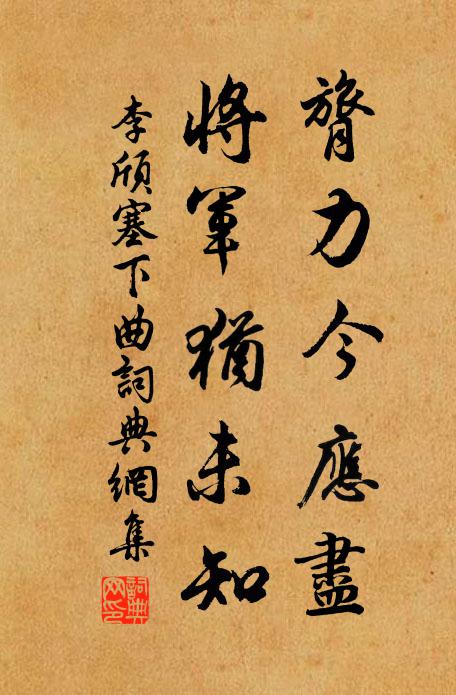 膂力今應盡
將軍猶未知
李頎塞下曲詞典網集
詞典網印